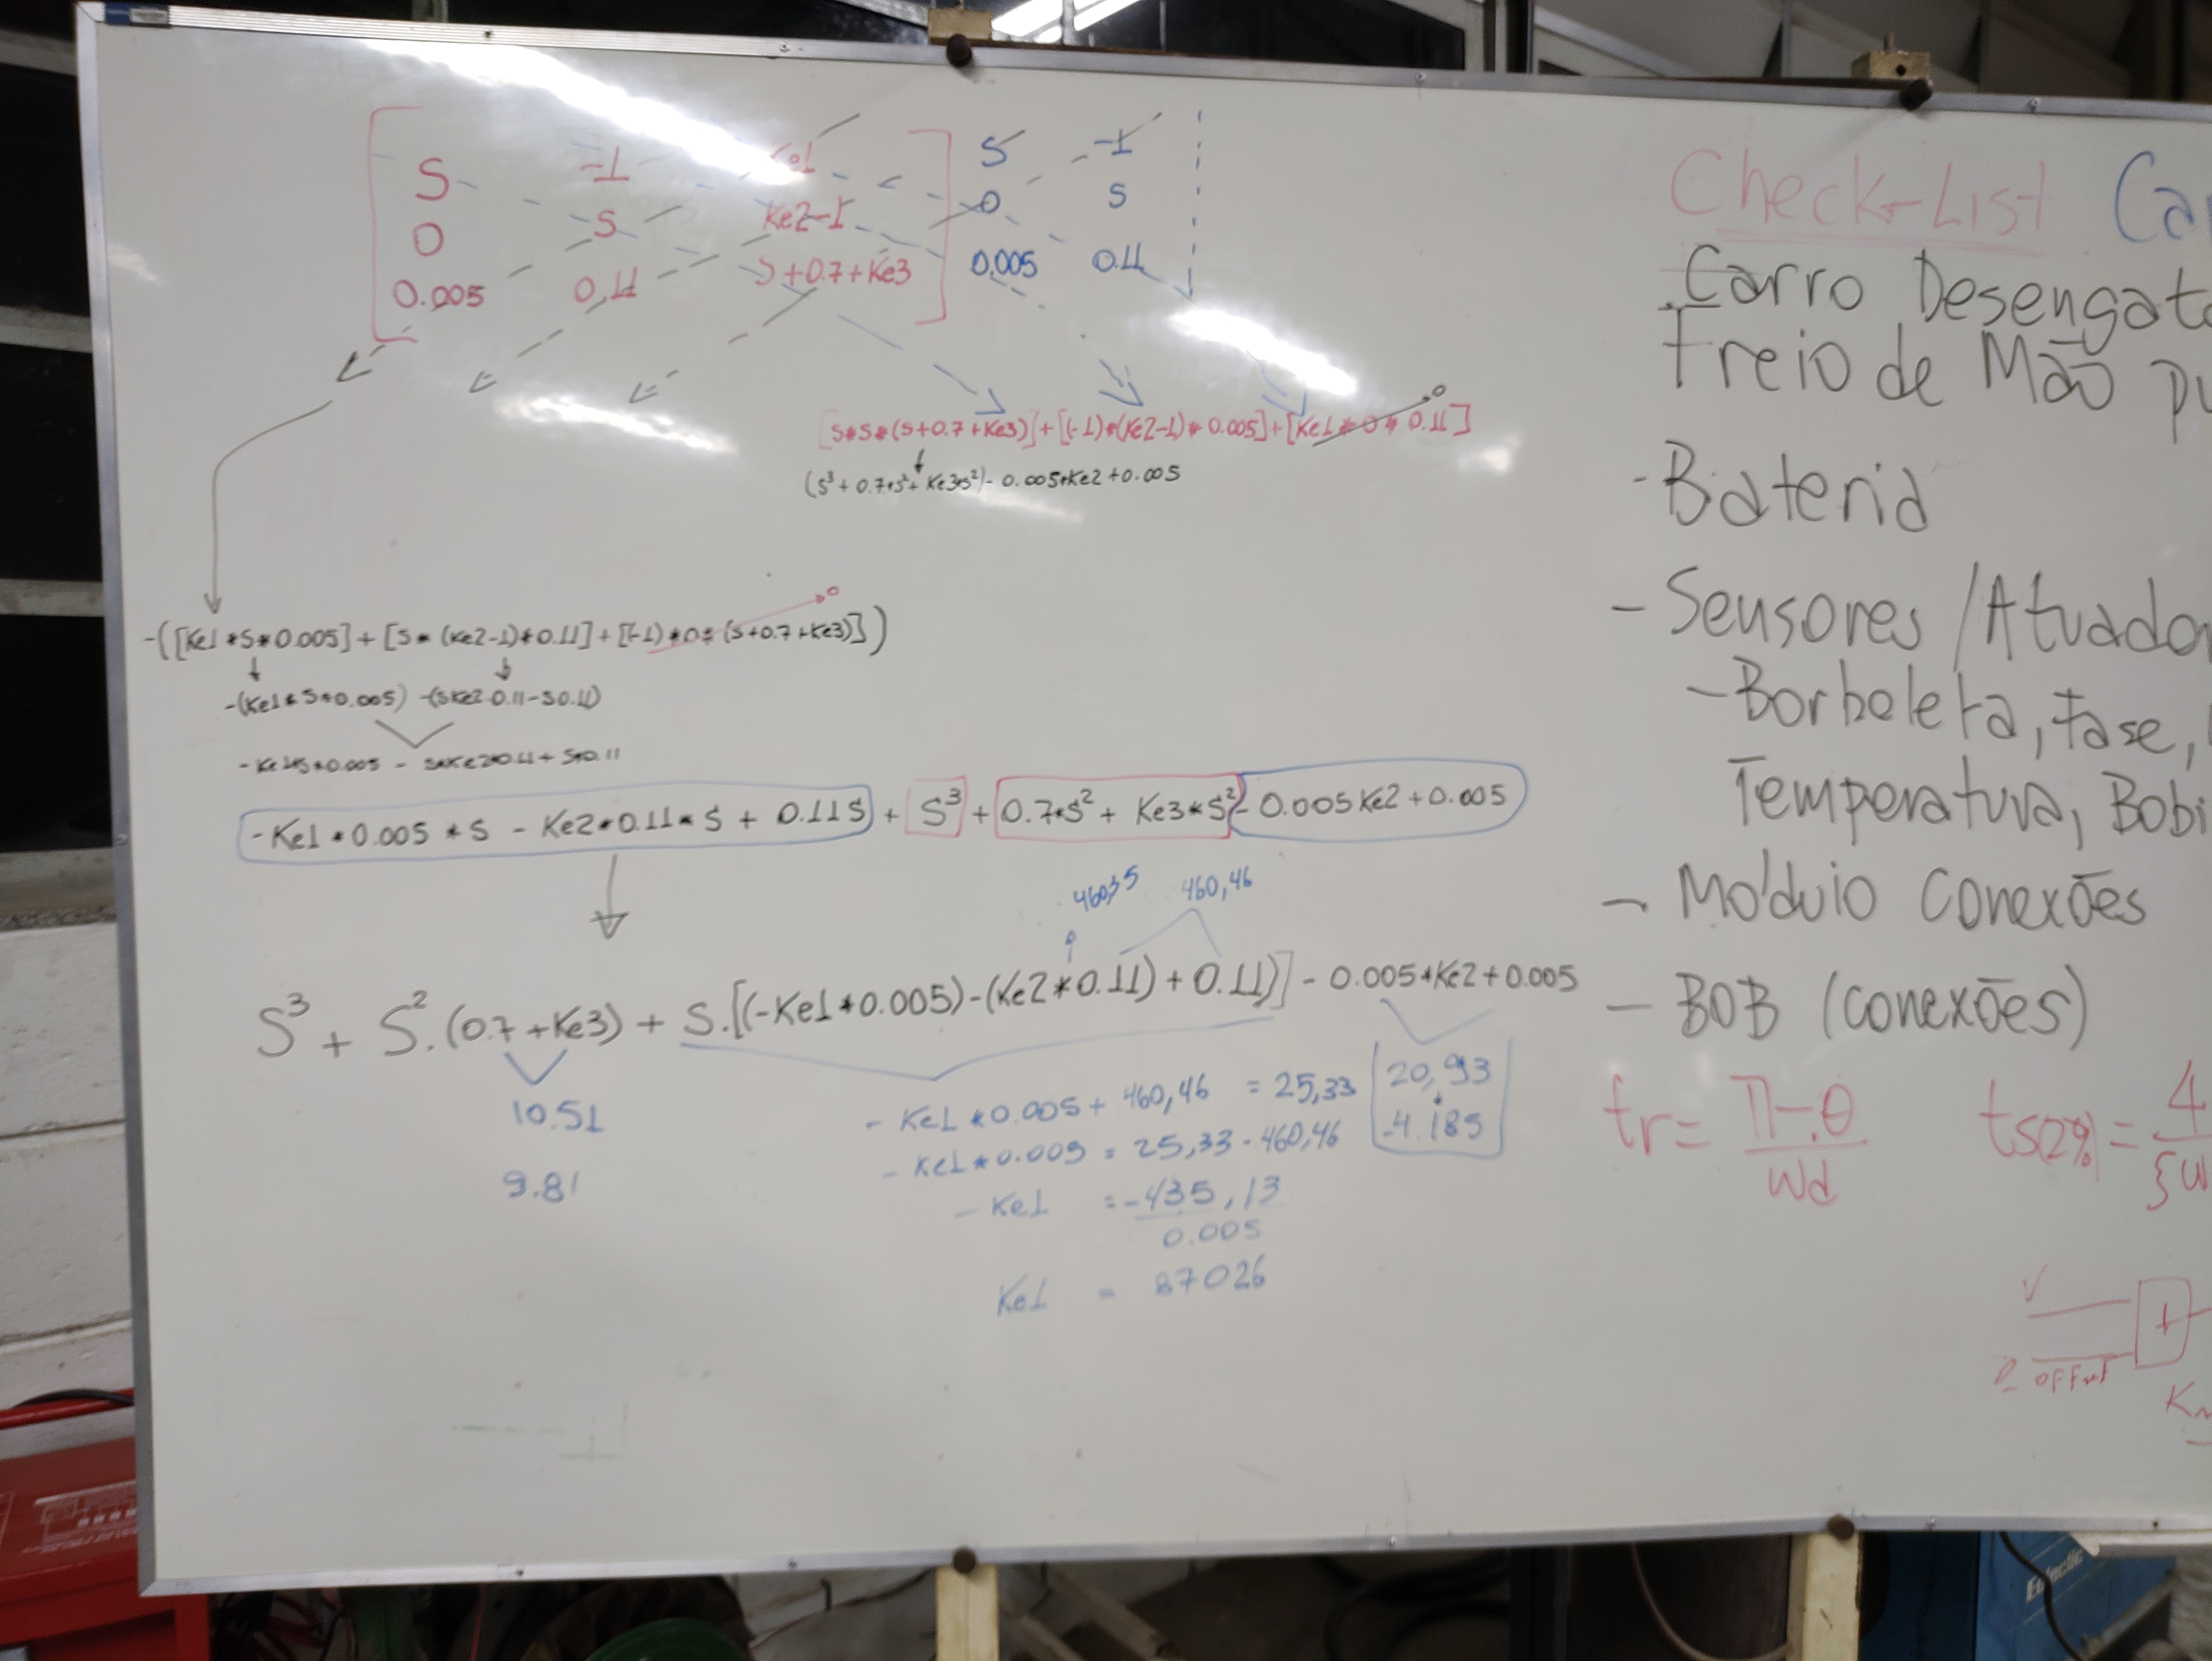 S -1 Ke1 S -1
0 S Ke2-1 0 S
0.005 0,11 S+0.7+Ke3 0.005 0.11
[S*S*(S+0.7+Ke3)]+[(-1)*(Ke2-1)*0.005]+[Ke1*0*0.11] 0
(S³+0.7*S²+Ke3*S²)-0.005*Ke2+0.005
0
-([Ke1*S*0.005]+[S*(Ke2-1)*0.11]+[(-1)*0*(S+0.7+Ke3)])
-(Ke1*S*0.005) -(SKe2.0.11-S0.11)
-Ke1*S*0.005 - S*Ke2*0.11+S*0.11
-Ke1*0.005*S - Ke2*0.11*S + 0.11S + S³ + 0.7*S² + Ke3*S² - 0.005Ke2+0.005
460,35 460,46
S³ + S².(0.7+Ke3) + S.[(-Ke1*0.005)-(Ke2*0.11)+0.11)] - 0.005*Ke2+0.005
10.51
9.81
- Ke1*0.005+ 460,46 = 25,33
- Ke1*0.005 = 25,33-460,46
- Ke1 = -435,13
0.005
Ke1 = 87026
20,93
-4.185
Check-List
Carro
Freio de Mão
-Bateria
- Sensores /
-Borboleta, fase,
Temperatura,
- Módulo Conexões
- BOB (conexões)
tr= π-θ
ωd
ts(2%) = 4
V
offset